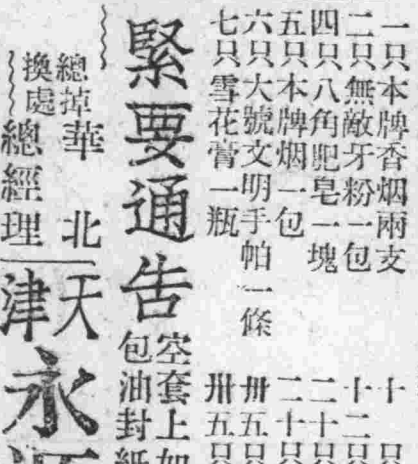 一只本牌香烟兩支 十只
二只無敵牙粉一包 十二只
四只八角肥皂一塊 二十只
五只本牌烟一包 二十只
六只大號文明手帕一條 卅五只
七只雪花膏一瓶 卅五只
緊要通告
空套上如
包油封紙
總掉
換處
華北
總經理
天津
永